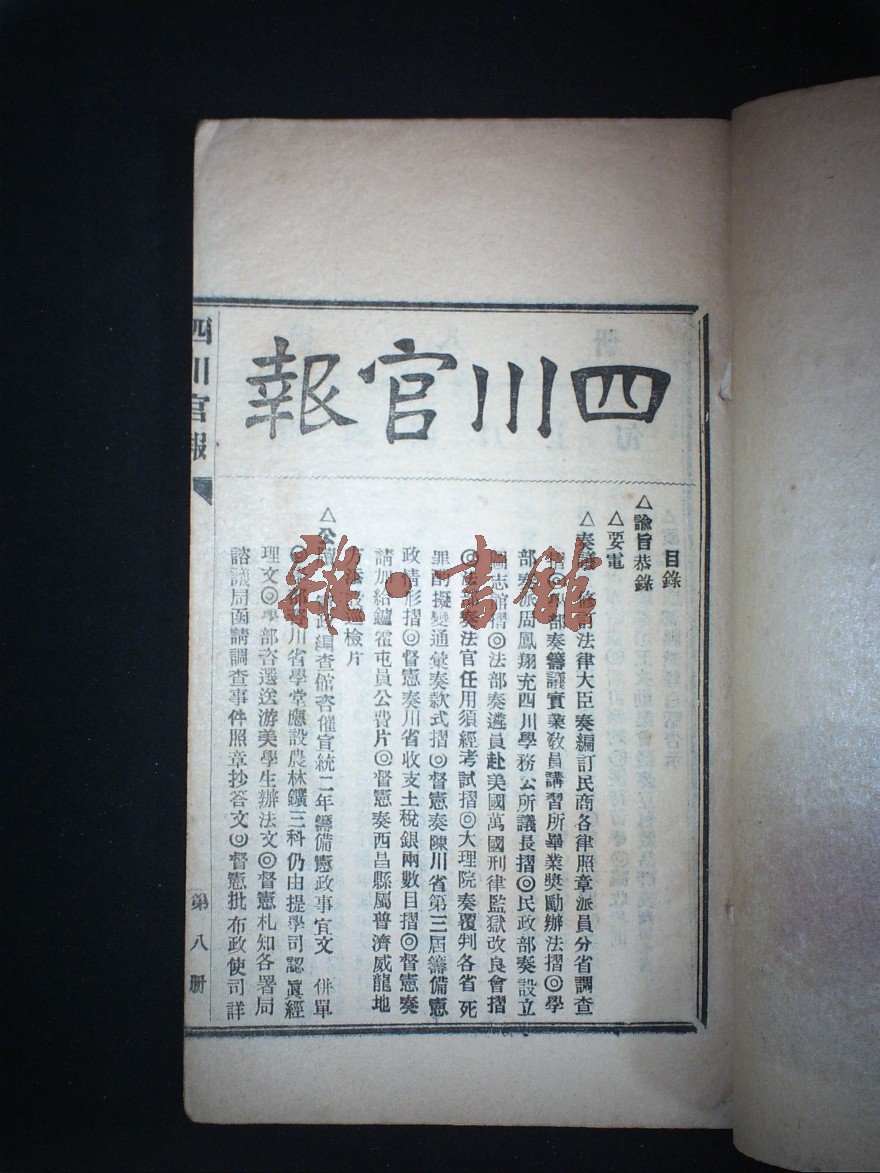 四川官報
目錄
△諭旨恭錄
△要電
△奏議 修訂法律大臣奏編訂民商各律照章派員分省調查
摺◎學部奏籌議實業敎員講習所畢業獎勵辦法摺◎學
部奏派周鳳翔充四川學務公所議長摺◎民政部奏設立
圖志館摺◎法部奏遴員赴美國萬國刑律監獄改良會摺
◎法部奏法官任用須經考試摺◎大理院奏覆判各省死
罪酌擬變通彙奏款式摺◎督憲奏陳川省第三屆籌備憲
政情形摺◎督憲奏川省收支土稅銀兩數目摺◎督憲奏
請加給鑪霍屯員公費片◎督憲奏西昌縣屬普濟威龍地
方添設巡檢片
△公牘 編查館咨催宣統二年籌備憲政事宜文 併單
川省學堂應設農林鑛三科仍由提學司認眞經
理文◎學部咨選送游美學生辦法文◎督憲札知各署局
諮議局函請調查事件照章抄答文◎督憲批布政使司詳
四川官報
第八册
雜·書館